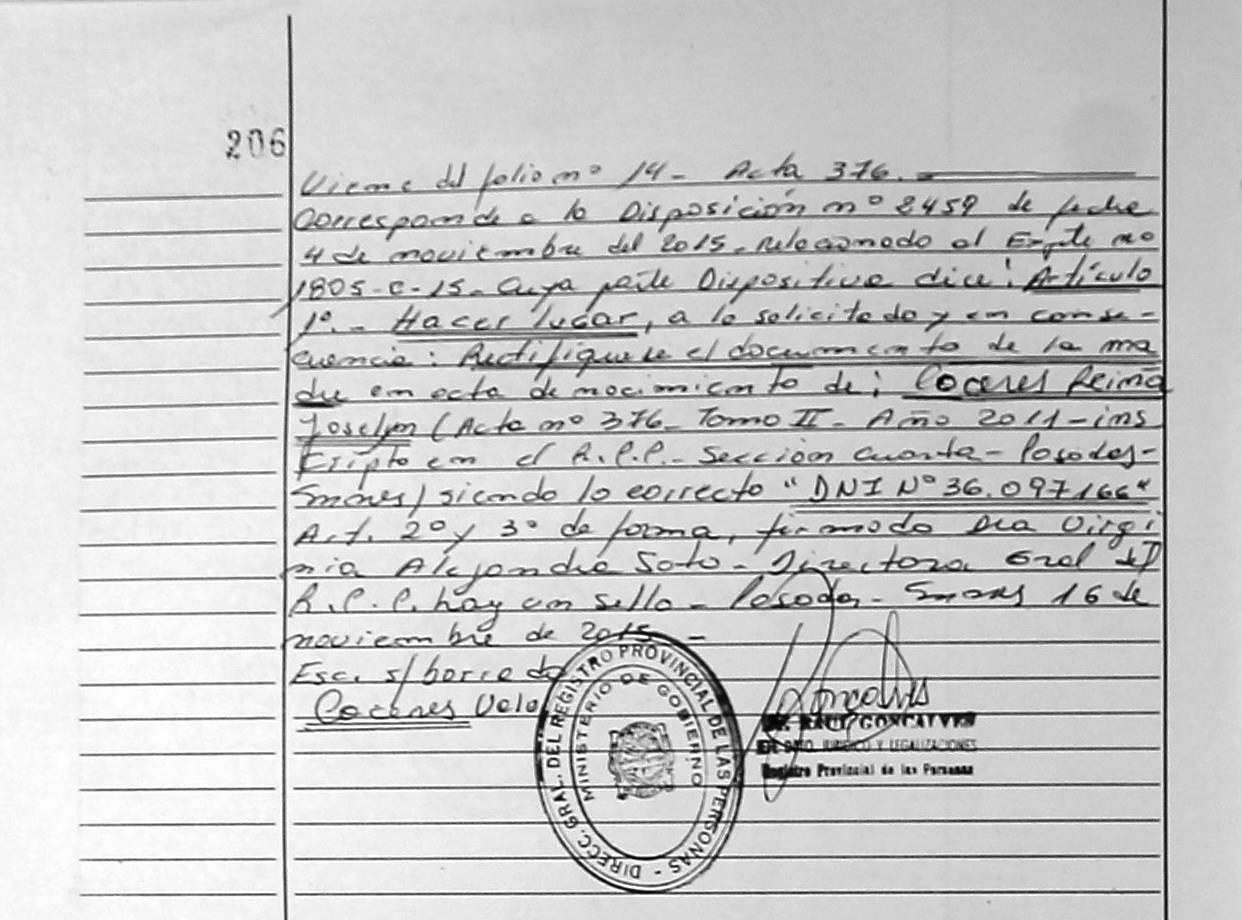 206
Viene del folio nº 14 - Acta 376. -
Corresponde a la Disposición nº 2459 de fecha
4 de noviembre del 2015. relacionado al Expte nº
1805-C-15. Cuya parte Dispositiva dice: Artículo
1º. - Hacer lugar, a lo solicitado y en conse-
cuencia: Rectifíquese el documento de la ma
dre en acta de nacimiento de; Coceres Reina
Joselyn (Acta nº 376 - Tomo II - Año 2011 - ins
cripto en el R.P.P. - Sección cuarta - Posadas -
Smones) siendo lo correcto "DNI Nº 36.097166"
Art. 2º y 3º de forma, firmado Dra Virgi
nia Alejandra Soto - Directora Gral del
R.P.P. hay un sello - Posadas - Smones 16 de
noviembre de 2015 -
Esc. s/borrado
Coceres Vale
DIRECC. GRAL. DEL REGISTRO PROVINCIAL DE LAS PERSONAS -
MINISTERIO DE GOBIERNO
RAUL GONCALVES
JURIDICO Y LEGALIZACIONES
Registro Provincial de las Personas